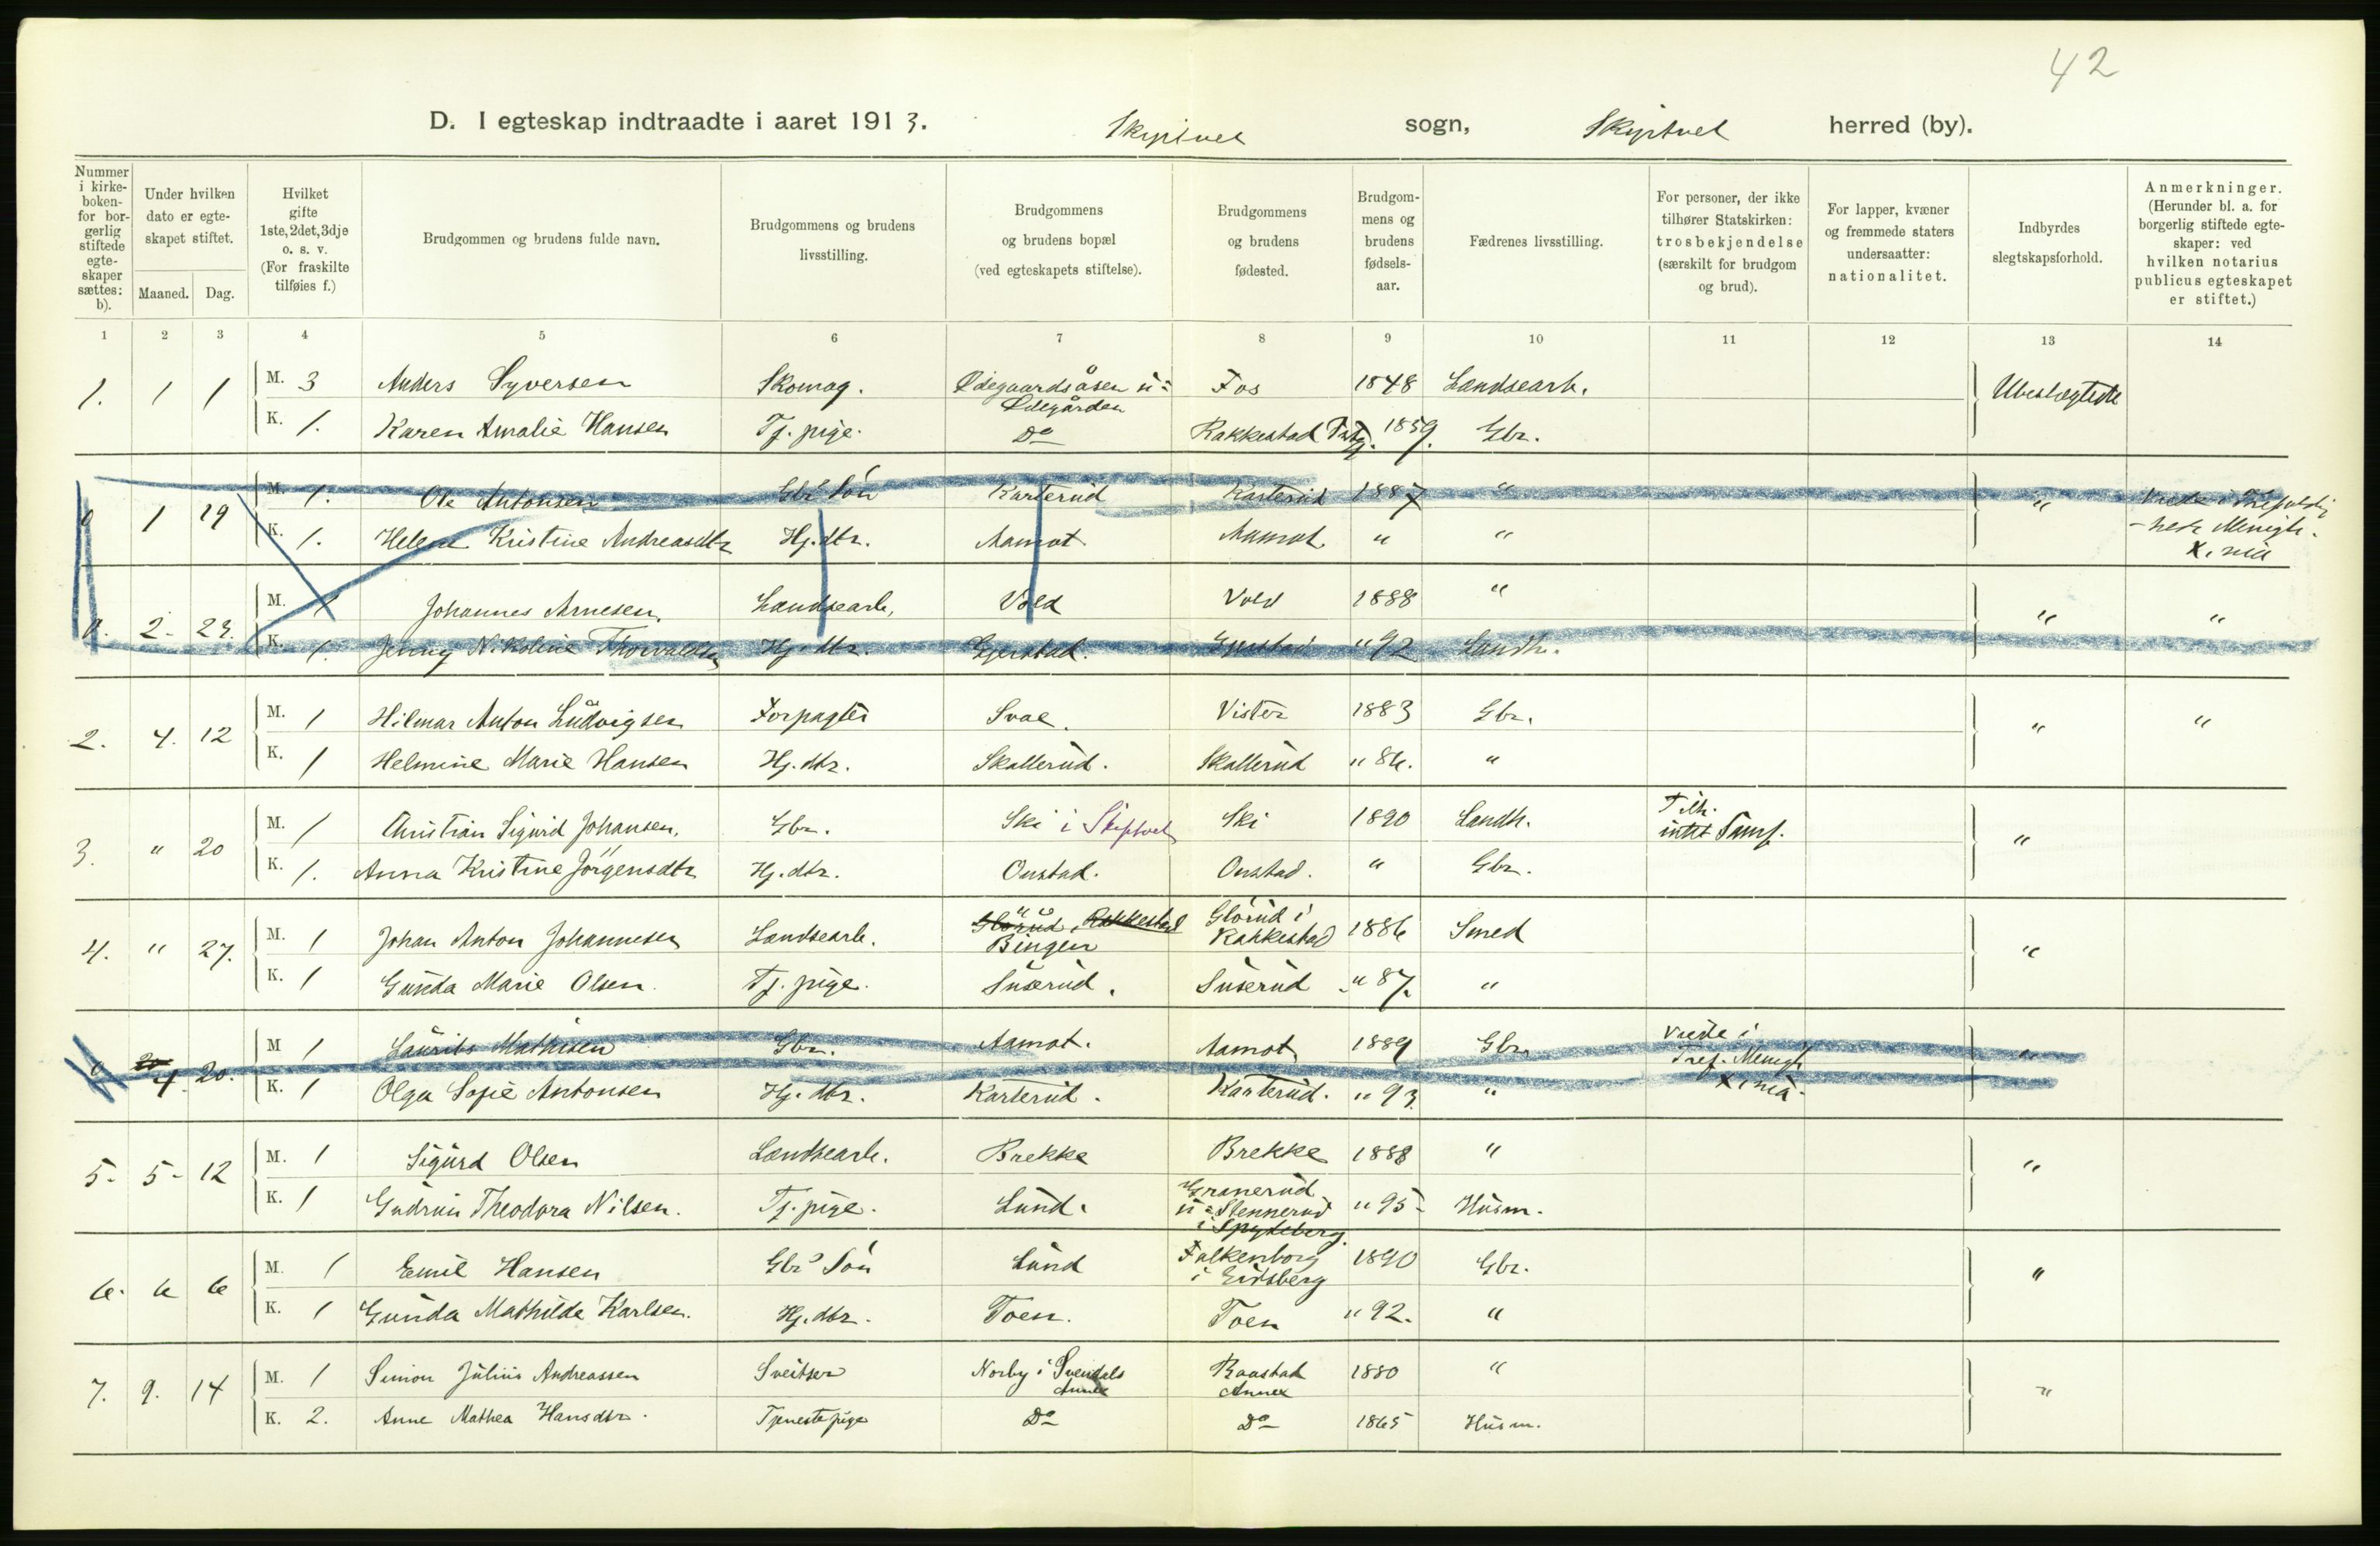 42
D. I egteskap indtraadte i aaret 1913. Skiptvet sogn, Skiptvet herred (by).
Nummer i kirke- boken- for bor- gerlig stiftede egte- skaper sættes: b).
Under hvilken dato er egte- skapet stiftet.
Maaned. Dag.
Hvilket gifte 1ste, 2det, 3dje o. s. v. (For fraskilte tilføies f.)
Brudgommen og brudens fulde navn.
Brudgommens og brudens livsstilling.
Brudgommens og brudens bopæl (ved egteskapets stiftelse).
Brudgommens og brudens fødested.
Brudgom- mens og brudens fødsels- aar.
Fædrenes livsstilling.
For personer, der ikke tilhører Statskirken: trosbekjendelse (særskilt for brudgom og brud).
For lapper, kvæner og fremmede staters undersaatter: nationalitet.
Indbyrdes slegtskapsforhold.
Anmerkninger. (Herunder bl. a. for borgerlig stiftede egte- skaper: ved hvilken notarius publicus egteskapet er stiftet.)
1 2 3 4 5 6 7 8 9 10 11 12 13 14
1. 1 1 M. 3 Anders Syversen Skomag. Ødegaardsåsen u= Ødegården Fos 1848 Landsearb. Ubeslægtede
K. 1. Karen Amalie Hansen Tj. pige. Do Rakkestad Prstg. 1859. Gbr.
0 1 19 M. 1. Ole Antonsen Gbr Søn Karterud Karterud 1887 " "
K. 1. Helene Kristine Andreasdtr Hj. dtr. Aamot Aamot " " Menigh.
0. 2- 23. M. 1 Johannes Arnesen. Landsearb. Vold Vold 1888 " " "
K. 1. Jenny Nikoline Thorvaldsen Hj. dtr. Gjerstad. Gjerstad " 92 Landh.
2. 4. 12 M. 1 Hilmar Anton Ludvigsen Forpagter Svae. Vister 1883 Gbr. " "
K. 1 Helmine Marie Hansen Hj. dtr. Skallerud. Skallerud " 86. "
3. " 20 M. 1 Christian Sigurd Johansen. Gbr. Ski i Skiptvet Ski 1890 Landh. Tilh. intet Samf. "
K. 1. Anna Kristine Jörgensdtr Hj. dtr. Onstad. Onstad. " Gbr.
4. " 27. M. 1 Johan Anton Johannesen Landsearb. Glörud, Rakkestad Bingen Glörud i Rakkestad 1886 Smed "
K. 1 Gunda Marie Olsen. Tj. pige. Suserud. Suserud " 87. "
0 4 20. M 1 Laurits Mathisen Gbr. Aamot. Aamot 1889 Gbr. Viede i Tref. Menigh "
K. 1 Olga Sofie Antonsen Hj. dtr. Karterud. Karterud. " 93. "
5- 5- 12 M. 1 Sigurd Olsen Landsearb. Brekke Brekke 1888 " "
K. 1 Gudrun Theodora Nilsen. Tj. pige. Lund. Granerud u= Stennerud i Spydeberg. " 95- Husm.
6. 6 6 M. 1 Emil Hansen Gbr Søn Lund Falkenborg i Eidsberg 1890 Gbr. "
K. 1 Gunda Mathilde Karlsen. Hj. dtr. Toen. Toen " 92. "
7. 9. 14 M. 1 Simon Julius Andreassen Sveitser Norby i Svendals Annex Raastad Annex 1880 " "
K. 2. Anne Mathea Hansdtr. Tjenestepige Do Do 1865 Husm.